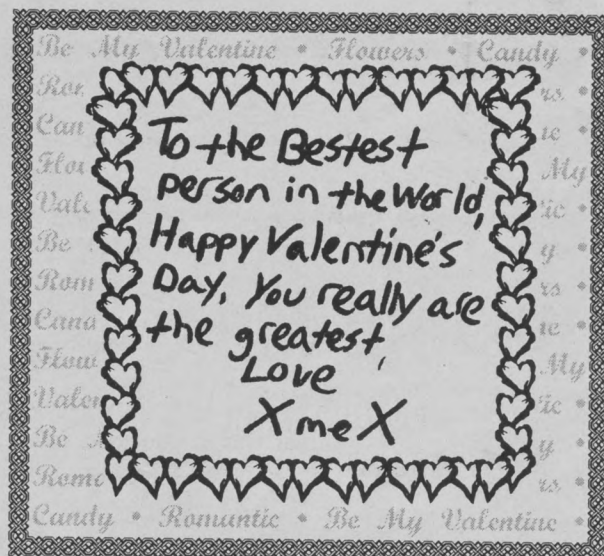 Be My Valentine • Flowers • Candy •
To the Bestest
person in the World,
Happy Valentine's
Day, You really are
the greatest,
Love
X me X
Candy • Romantic • Be My Valentine •